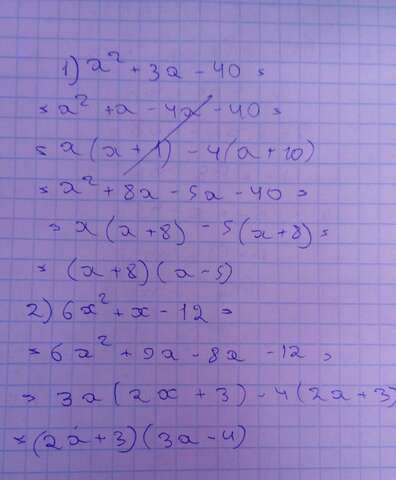 1) x² + 3x - 40 =
= x² + x - 4x - 40 =
= x(x + 1) - 4(x + 10)
= x² + 8x - 5x - 40 =
= x(x + 8) - 5(x + 8) =
= (x + 8)(x - 5)
2) 6x² + x - 12 =
= 6x² + 9x - 8x - 12 =
= 3x(2x + 3) - 4(2x + 3)
= (2x + 3)(3x - 4)